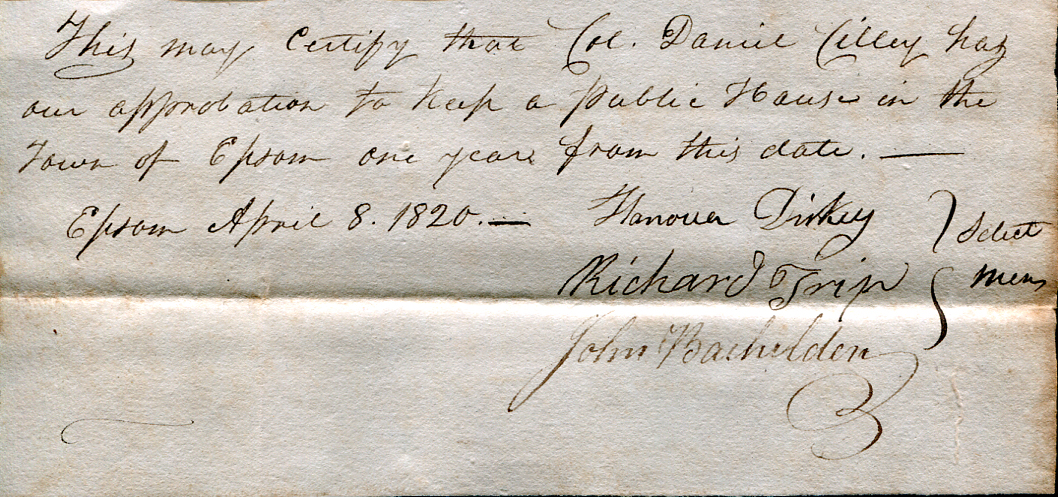 This may Certify that Col. Daniel Cilley has
our approbation to keep a Public House in the
Town of Epsom one year from this date. —
Epsom April 8. 1820. — Hanover Dickey } Select
Richard Tripp men
John Bachelder